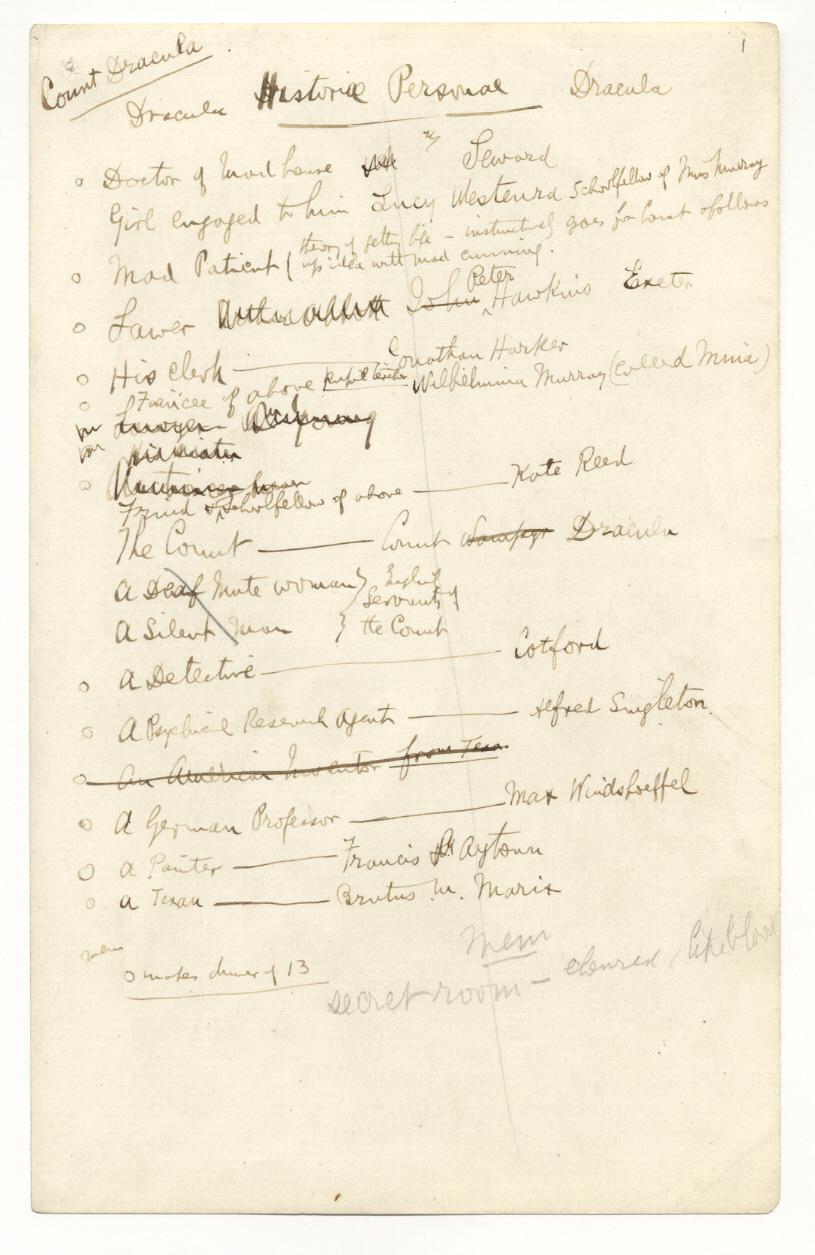 1
Count Dracula
Dracula Historiæ Personae Dracula
Doctor of Mad house Seward
Girl engaged to him Lucy Westenra Schoolfellow of Miss Murray
Mad Patient (theory of getting life – instinctively goes for Count & follows
up idea with mad cunning.
Lawer John Peter Hawkins Exeter
His clerk Jonathan Harker
Fiancée of above pupil teacher Wilhelmina Murray (called Mina)
Lawyer
Friend & schoolfellow of above Kate Reed
The Count Count Wampyr Dracula
A Deaf Mute woman } English
Servants of
A Silent Man } the Count
A Detective Cotford
A Psychical Research Agent Alfred Singleton.
An American Inventor from Texas
A German Professor Max Windshoeffel
A Painter Francis Aytown
A Texan Brutus M. Marix
mem
makes dinner of 13
Mem
secret room – coloured like blood